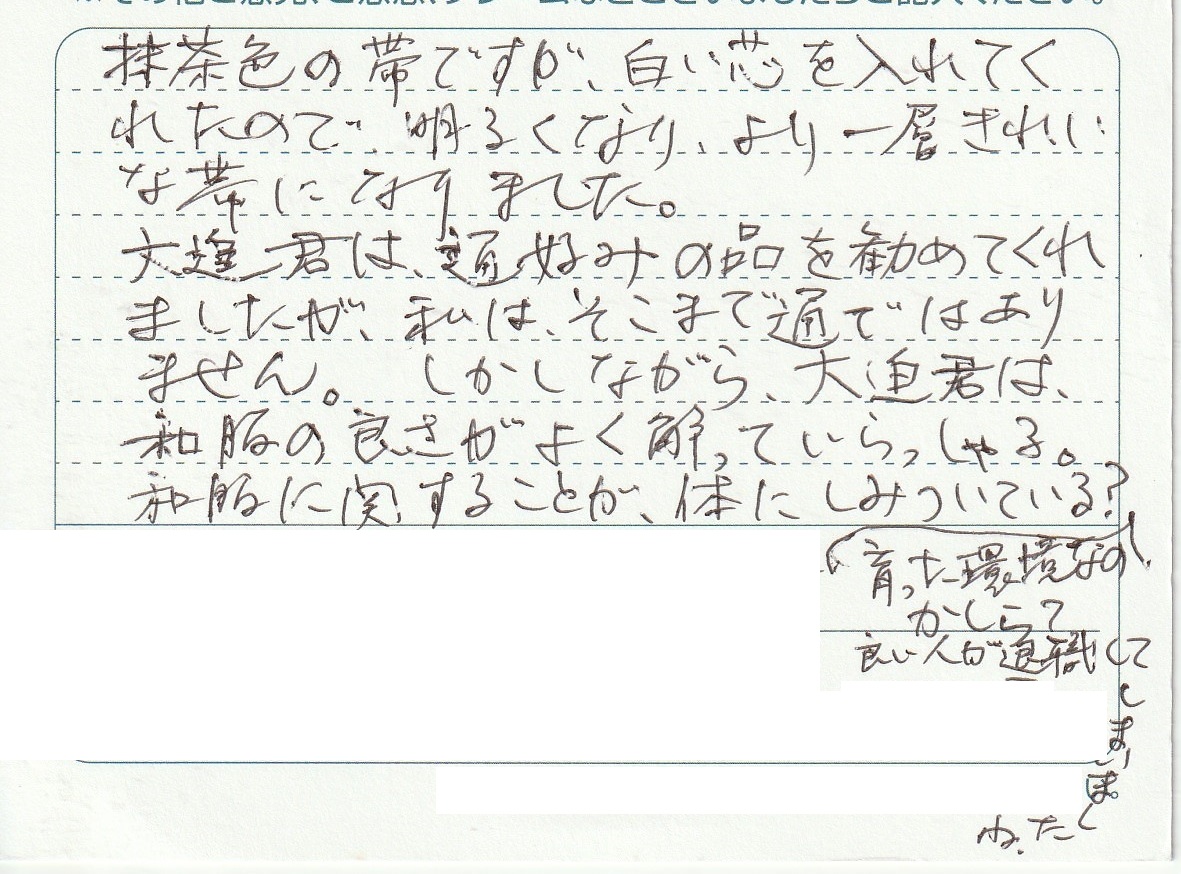 抹茶色の帯ですが、白い芯を入れてく
れたので、明るくなり、より一層きれい
な帯になりました。
大迫君は、通好みの品を勧めてくれ
ましたが、私は、そこまで通ではあり
ません。しかしながら、大迫君は、
和服の良さがよく解っていらっしゃる。
和服に関することが、体にしみついている?
育った環境なの
かしら?
良い人が退職して
しま